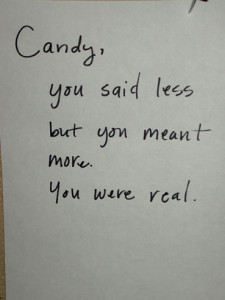 Candy,
you said less
but you meant
more.
You were real.